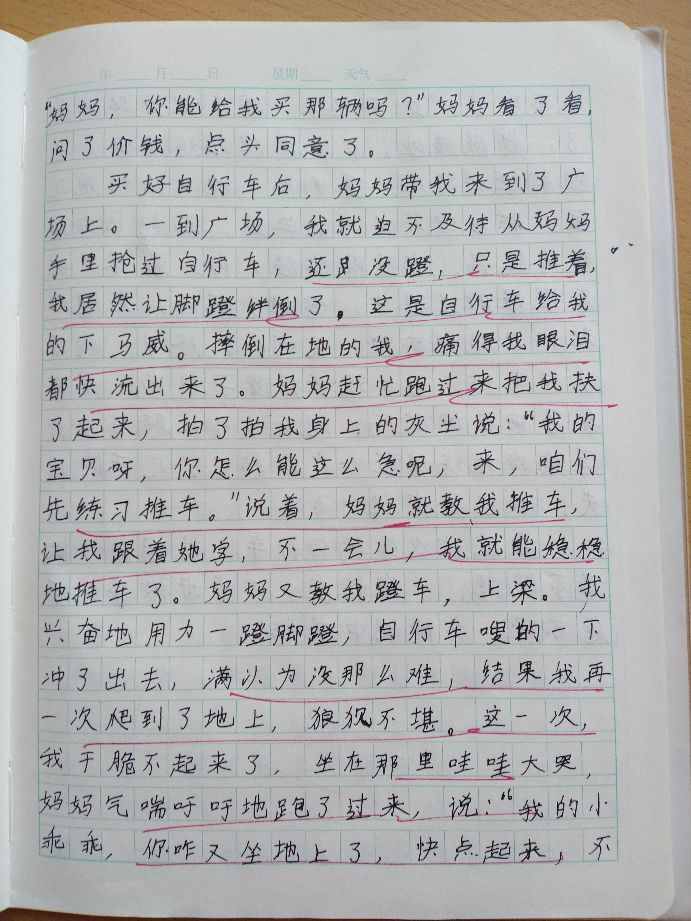 年 月 日 星期 天气
“妈妈，你能给我买那辆吗？”妈妈看了看，
问了价钱，点头同意了。
买好自行车后，妈妈带我来到了广
场上。一到广场，我就迫不及待从妈妈
手里抢过自行车，还没蹬，只是推着，
我居然让脚蹬绊倒了。这是自行车给我
的下马威。摔倒在地的我，痛得我眼泪
都快流出来了。妈妈赶忙跑过来把我扶
了起来，拍了拍我身上的灰尘说：“我的
宝贝呀，你怎么能这么急呢，来，咱们
先练习推车。”说着，妈妈就教我推车，
让我跟着她学，不一会儿，我就能稳稳
地推车了。妈妈又教我蹬车，上梁。我
兴奋地用力一蹬脚蹬，自行车嗖的一下
冲了出去，满以为没那么难，结果我再
一次爬到了地上，狼狈不堪。这一次，
我干脆不起来了，坐在那里哇哇大哭，
妈妈气喘吁吁地跑了过来，说：“我的小
乖乖，你咋又坐地上了，快点起来，不